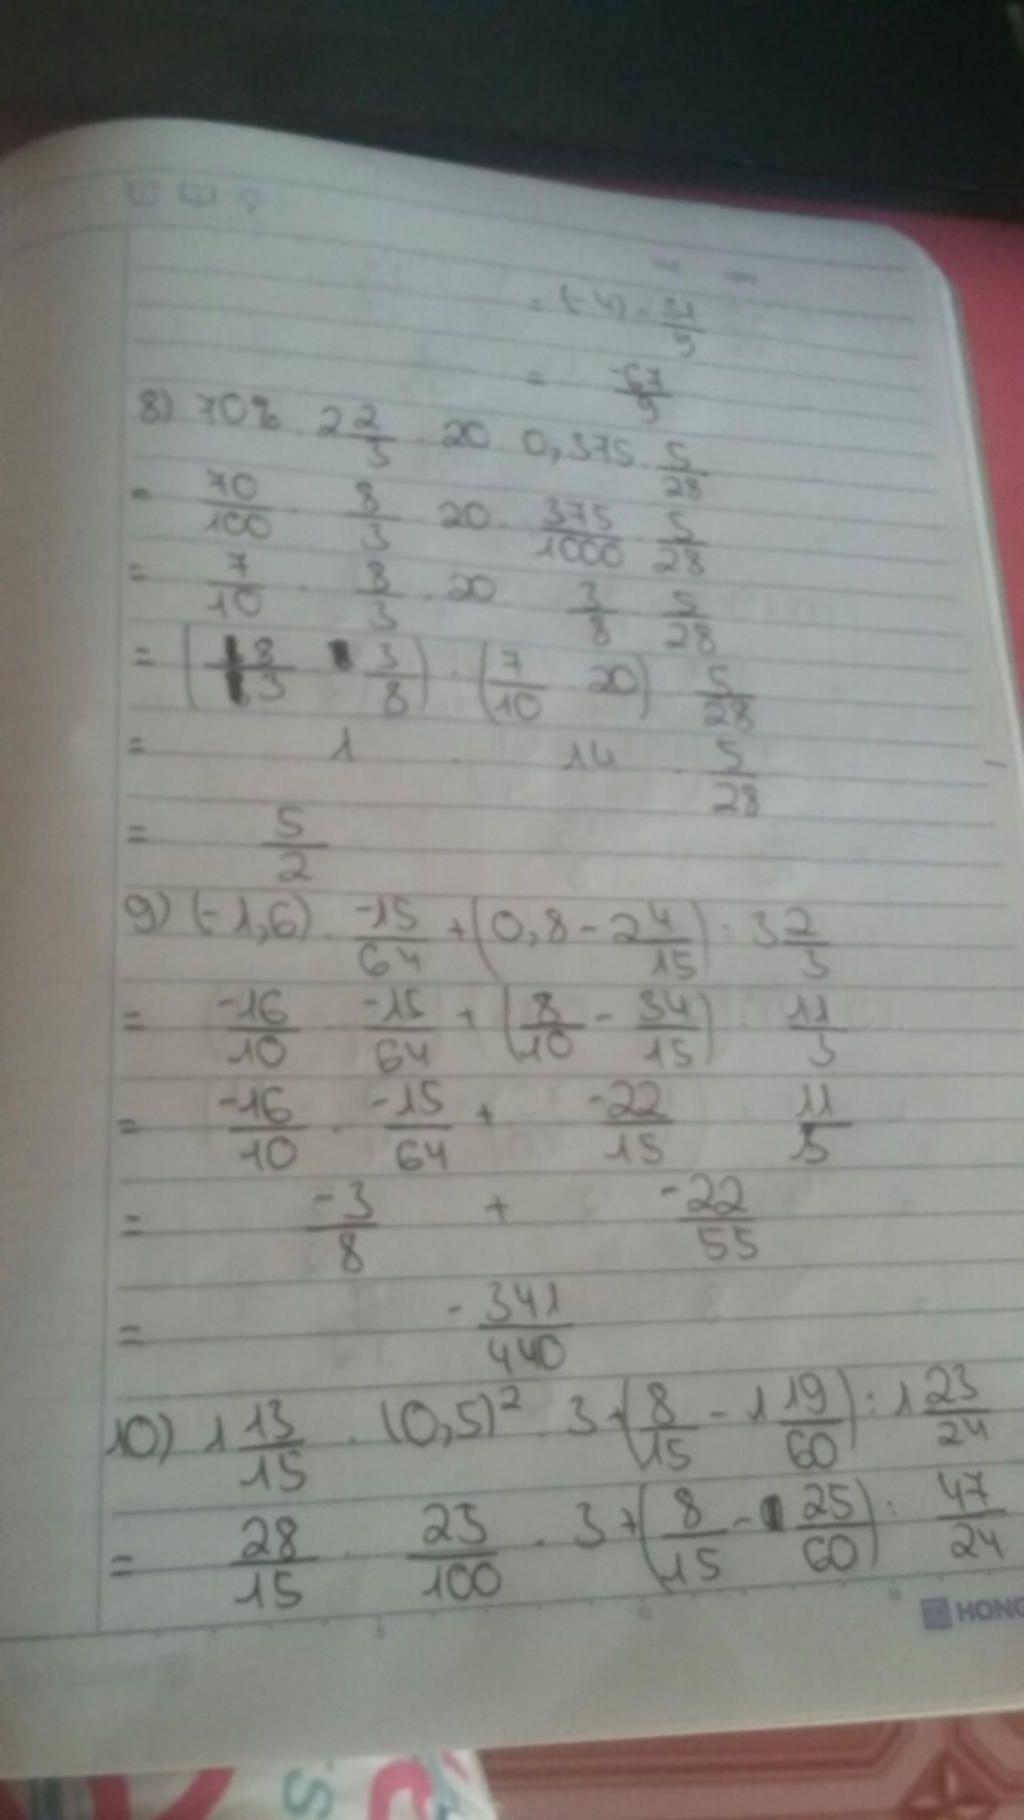 = (-4) - 31/9
= -67/9
8) 70% . 2 2/3 . 20 . 0,375 . 5/28
= 70/100 . 8/3 . 20 . 375/1000 . 5/28
= 7/10 . 8/3 . 20 3/8 . 5/28
= (8/3 . 3/8) . (7/10 20) 5/28
= 1 . 14 . 5/28
= 5/2
9) (-1,6) . -15/64 + (0,8 - 2 4/15) : 3 2/3
= -16/10 . -15/64 + (8/10 - 34/15) 11/3
= -16/10 . -15/64 + -22/15 . 11/3
= -3/8 + -22/55
= - 341/440
10) 1 13/15 . (0,5)² . 3 + (8/15 - 1 19/60) : 1 23/24
= 28/15 . 25/100 . 3 + (8/15 - 25/60) : 47/24
HONG